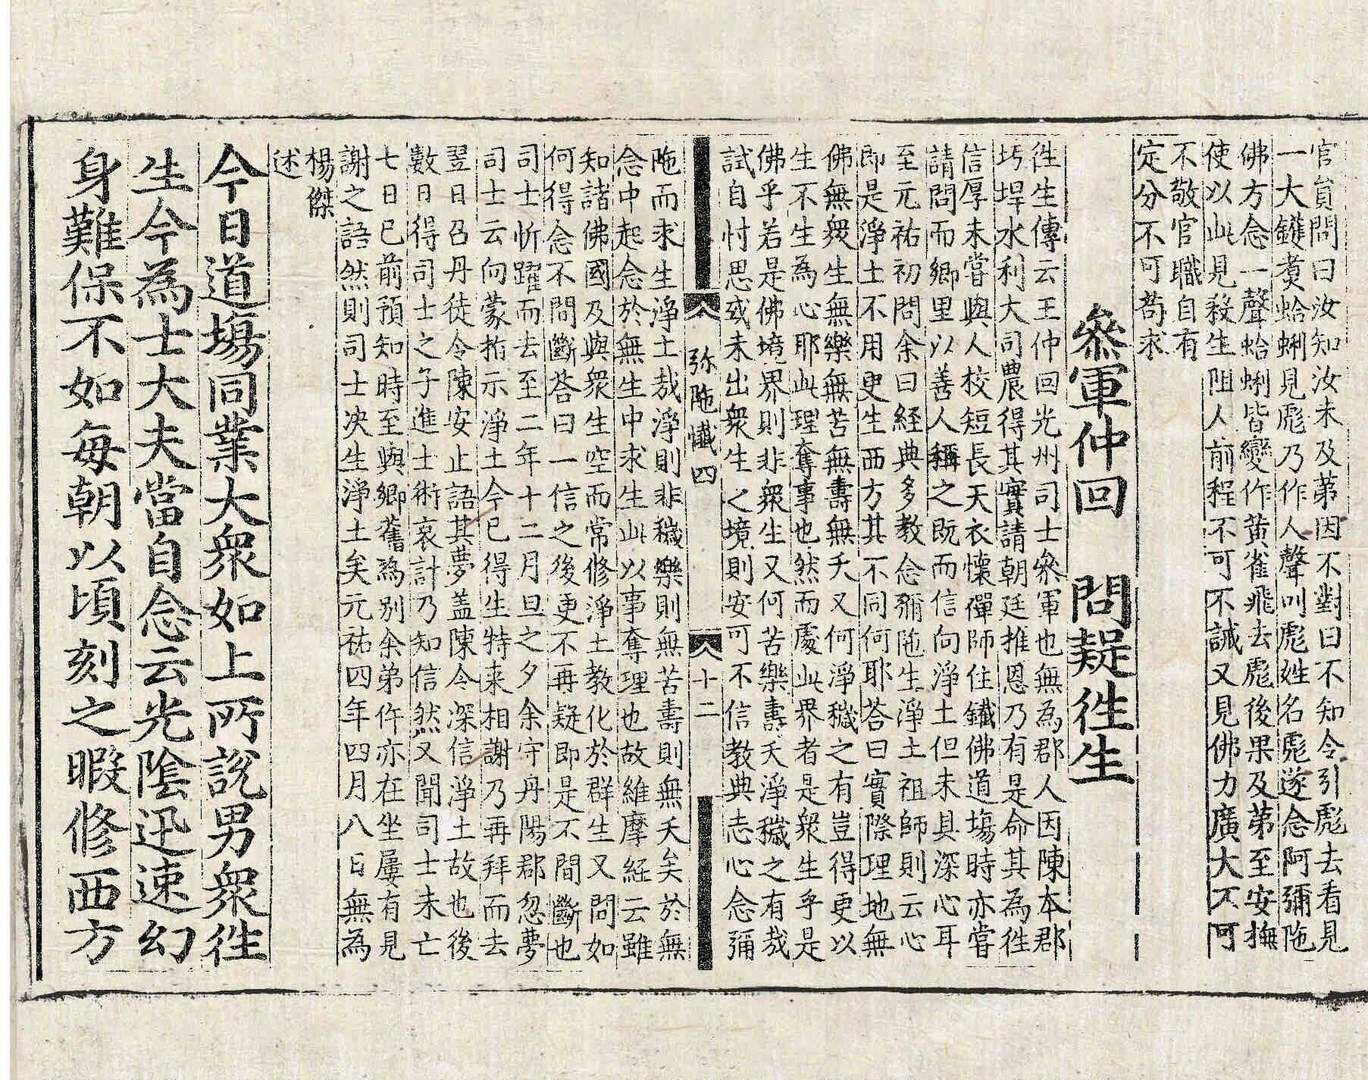 官員問曰汝知汝未及第因不對曰不知令引彪去看見
一大鑊煑蛤蜊見彪乃作人聲叫彪姓名彪遂念阿彌陁
佛方念一聲蛤蜊皆變作黄雀飛去彪後果及第至安撫
使以此見殺生阻人前程不可不誡又見佛力廣大不可
不敬官職自有
定分不可茍求
叅軍仲回 問疑徃生
徃生傳云王仲回光州司士叅軍也無為郡人因陳本郡
圬垾水利大司農得其實請朝廷推恩乃有是命其為徃
信厚未嘗與人校短長天衣懷禪師住鐵佛道塲時亦嘗
請問而鄉里以善人稱之既而信向淨土但未具深心耳
至元祐初問余曰經典多教念彌陁生淨土祖師則云心
即是淨土不用更生西方其不同何耶答曰實際理地無
佛無衆生無樂無苦無壽無夭又何淨穢之有豈得更以
生不生為心耶此理奪事也然而處此界者是衆生乎是
佛乎若是佛境界則非衆生又何苦樂壽夭淨穢之有哉
試自忖思或未出衆生之境則安可不信教典志心念彌
弥陁懺四 十二
陁而求生淨土哉淨則非穢樂則無苦壽則無夭矣於無
念中起念於無生中求生此以事奪理也故維摩經云雖
知諸佛國及與衆生空而常修淨土教化於群生又問如
何得念不間斷答曰一信之後更不再疑即是不間斷也
司士忻躍而去至二年十二月旦之夕余守丹陽郡忽夢
司士云向蒙指示淨土今已得生特来相謝乃再拜而去
翌日召丹徒令陳安止語其夢盖陳令深信淨土故也後
數日得司士之子進士術哀計乃知信然又聞司士未亡
七日已前預知時至與鄉舊為别余弟仵亦在坐屢有見
謝之語然則司士决生淨土矣元祐四年四月八日無為
楊傑
述
今日道塲同業大衆如上所說男衆徃
生今為士大夫當自念云光隂迅速幻
身難保不如每朝以頃刻之暇修西方